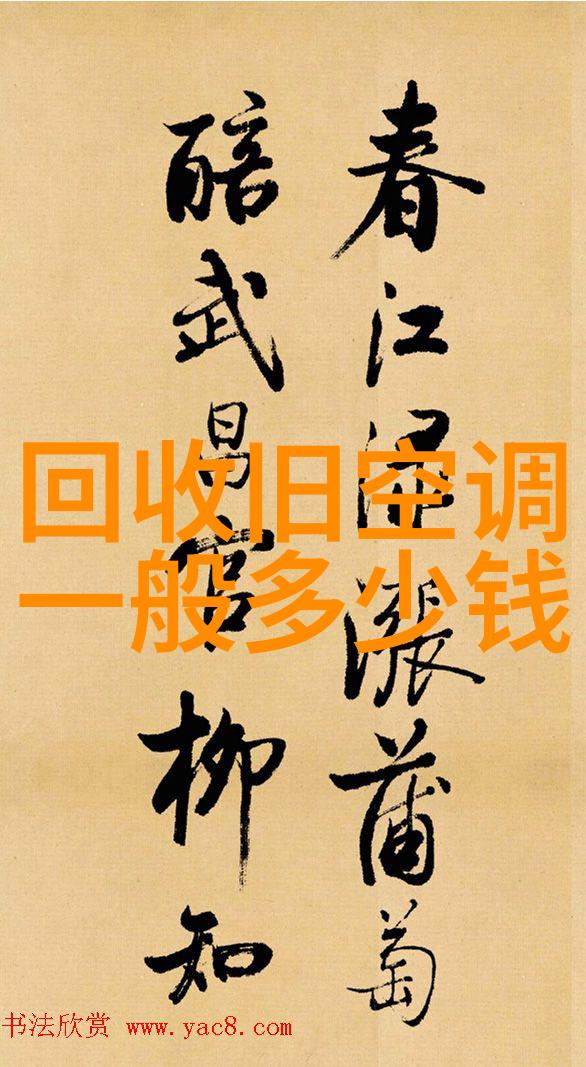 春江渌漲蒲萄
醅武昌官柳知
回收旧空调
一般多少钱
书法欣赏 www.yac8.com